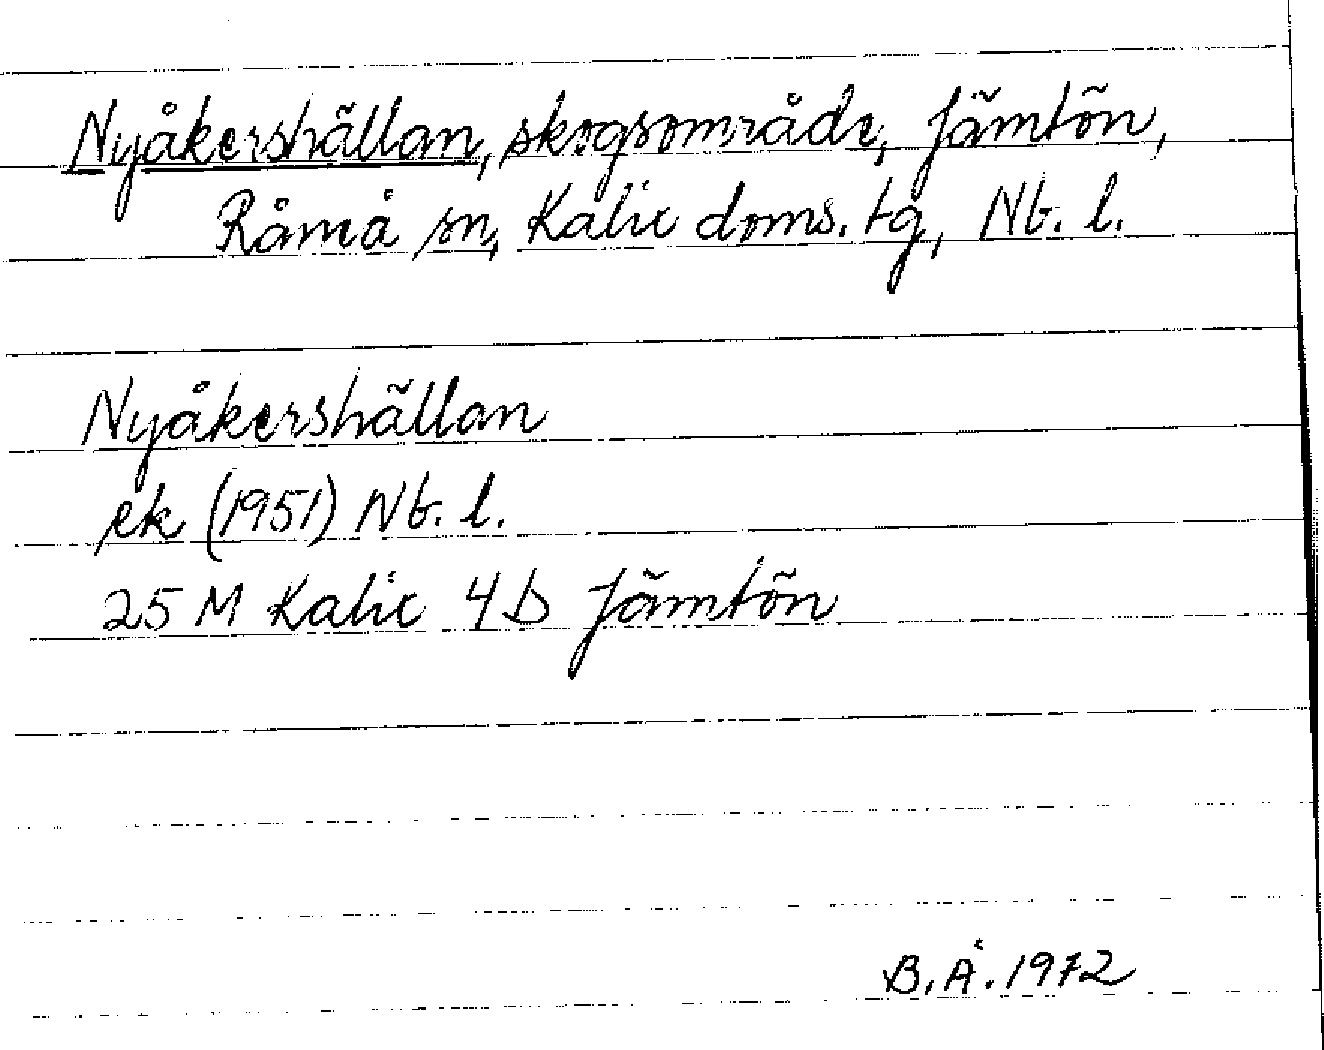 Nyåkershällan, skogsområde, Jämtön,
Råneå sn, Kalix doms. tg, Nb. l.
Nyåkershällan
ek (1951) Nb. l.
25 M Kalix 4D Jämtön
B.Å. 1972